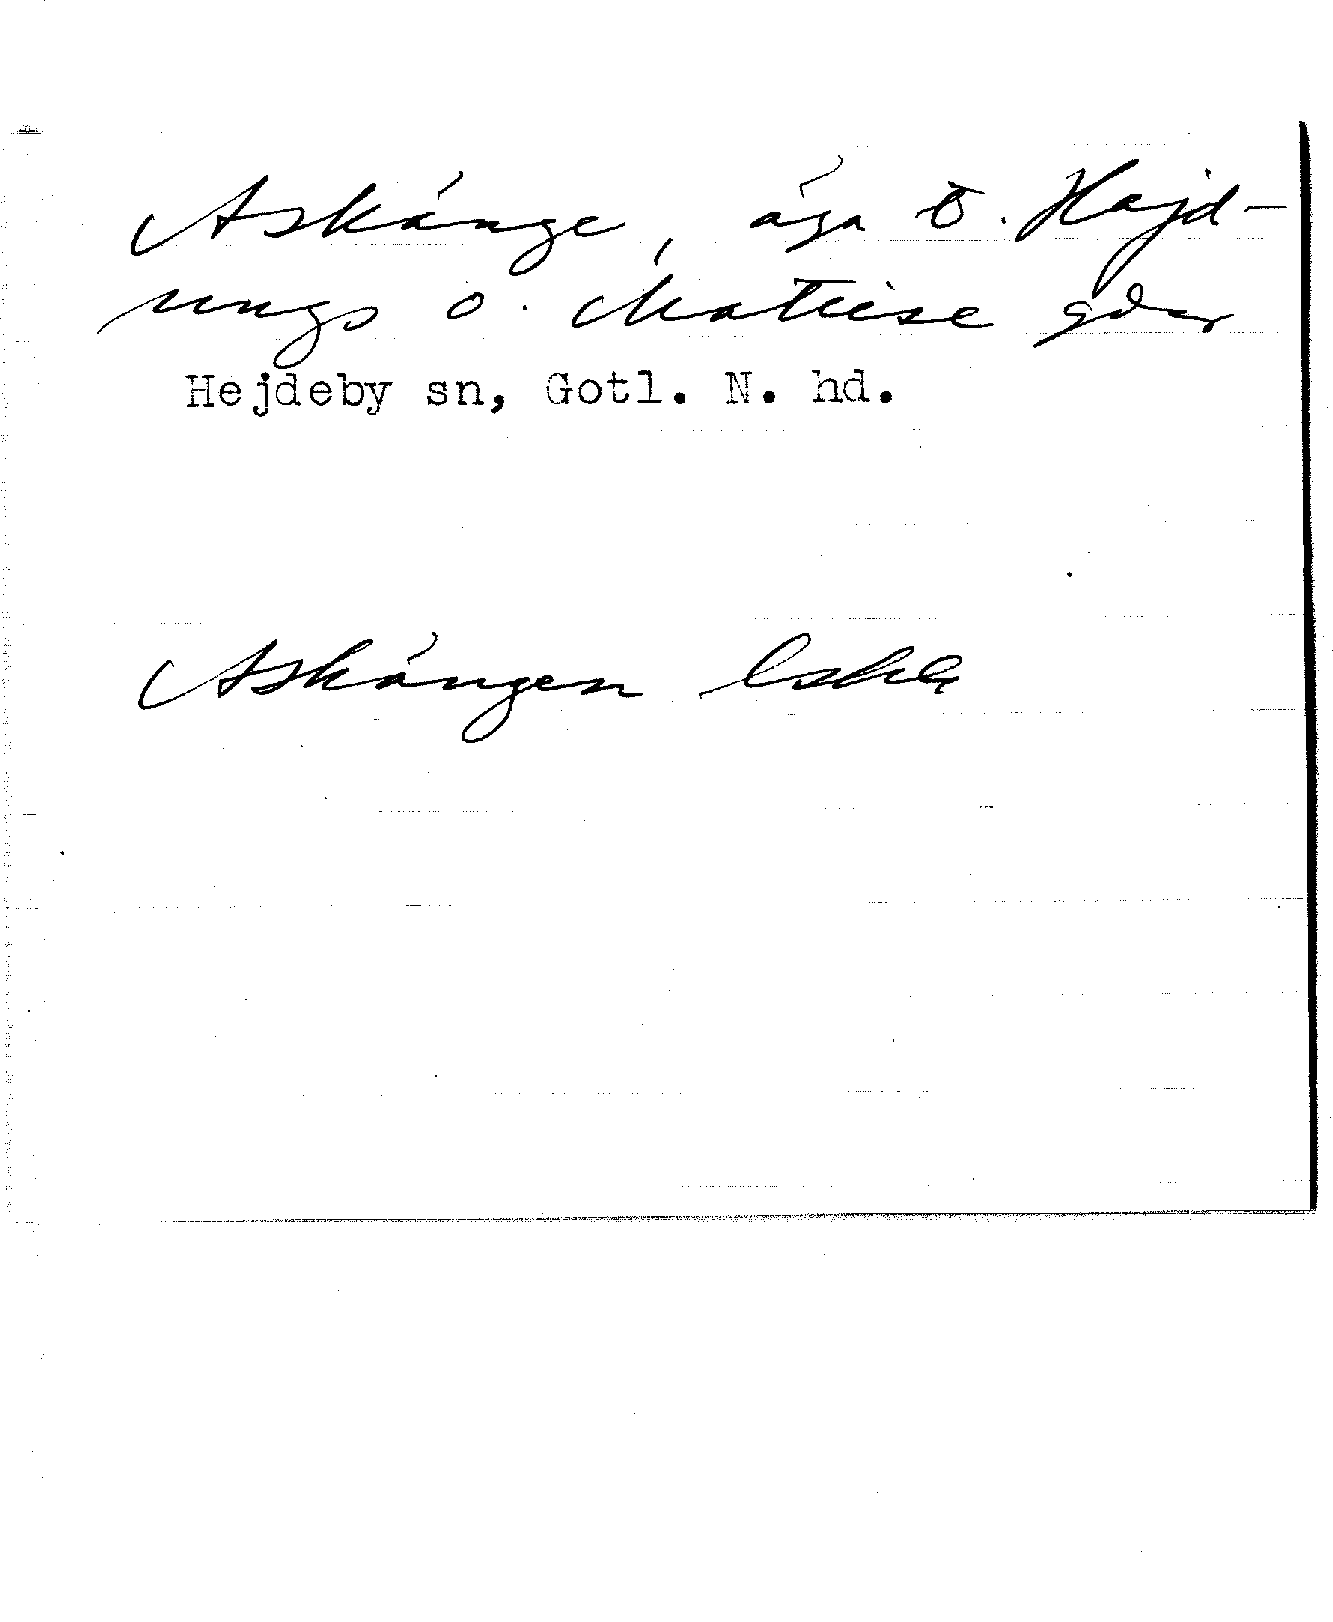 Askänge, äga t. Hajd-
ungs o. Matise gdar
Hejdeby sn, Gotl. N. hd.
Askängen